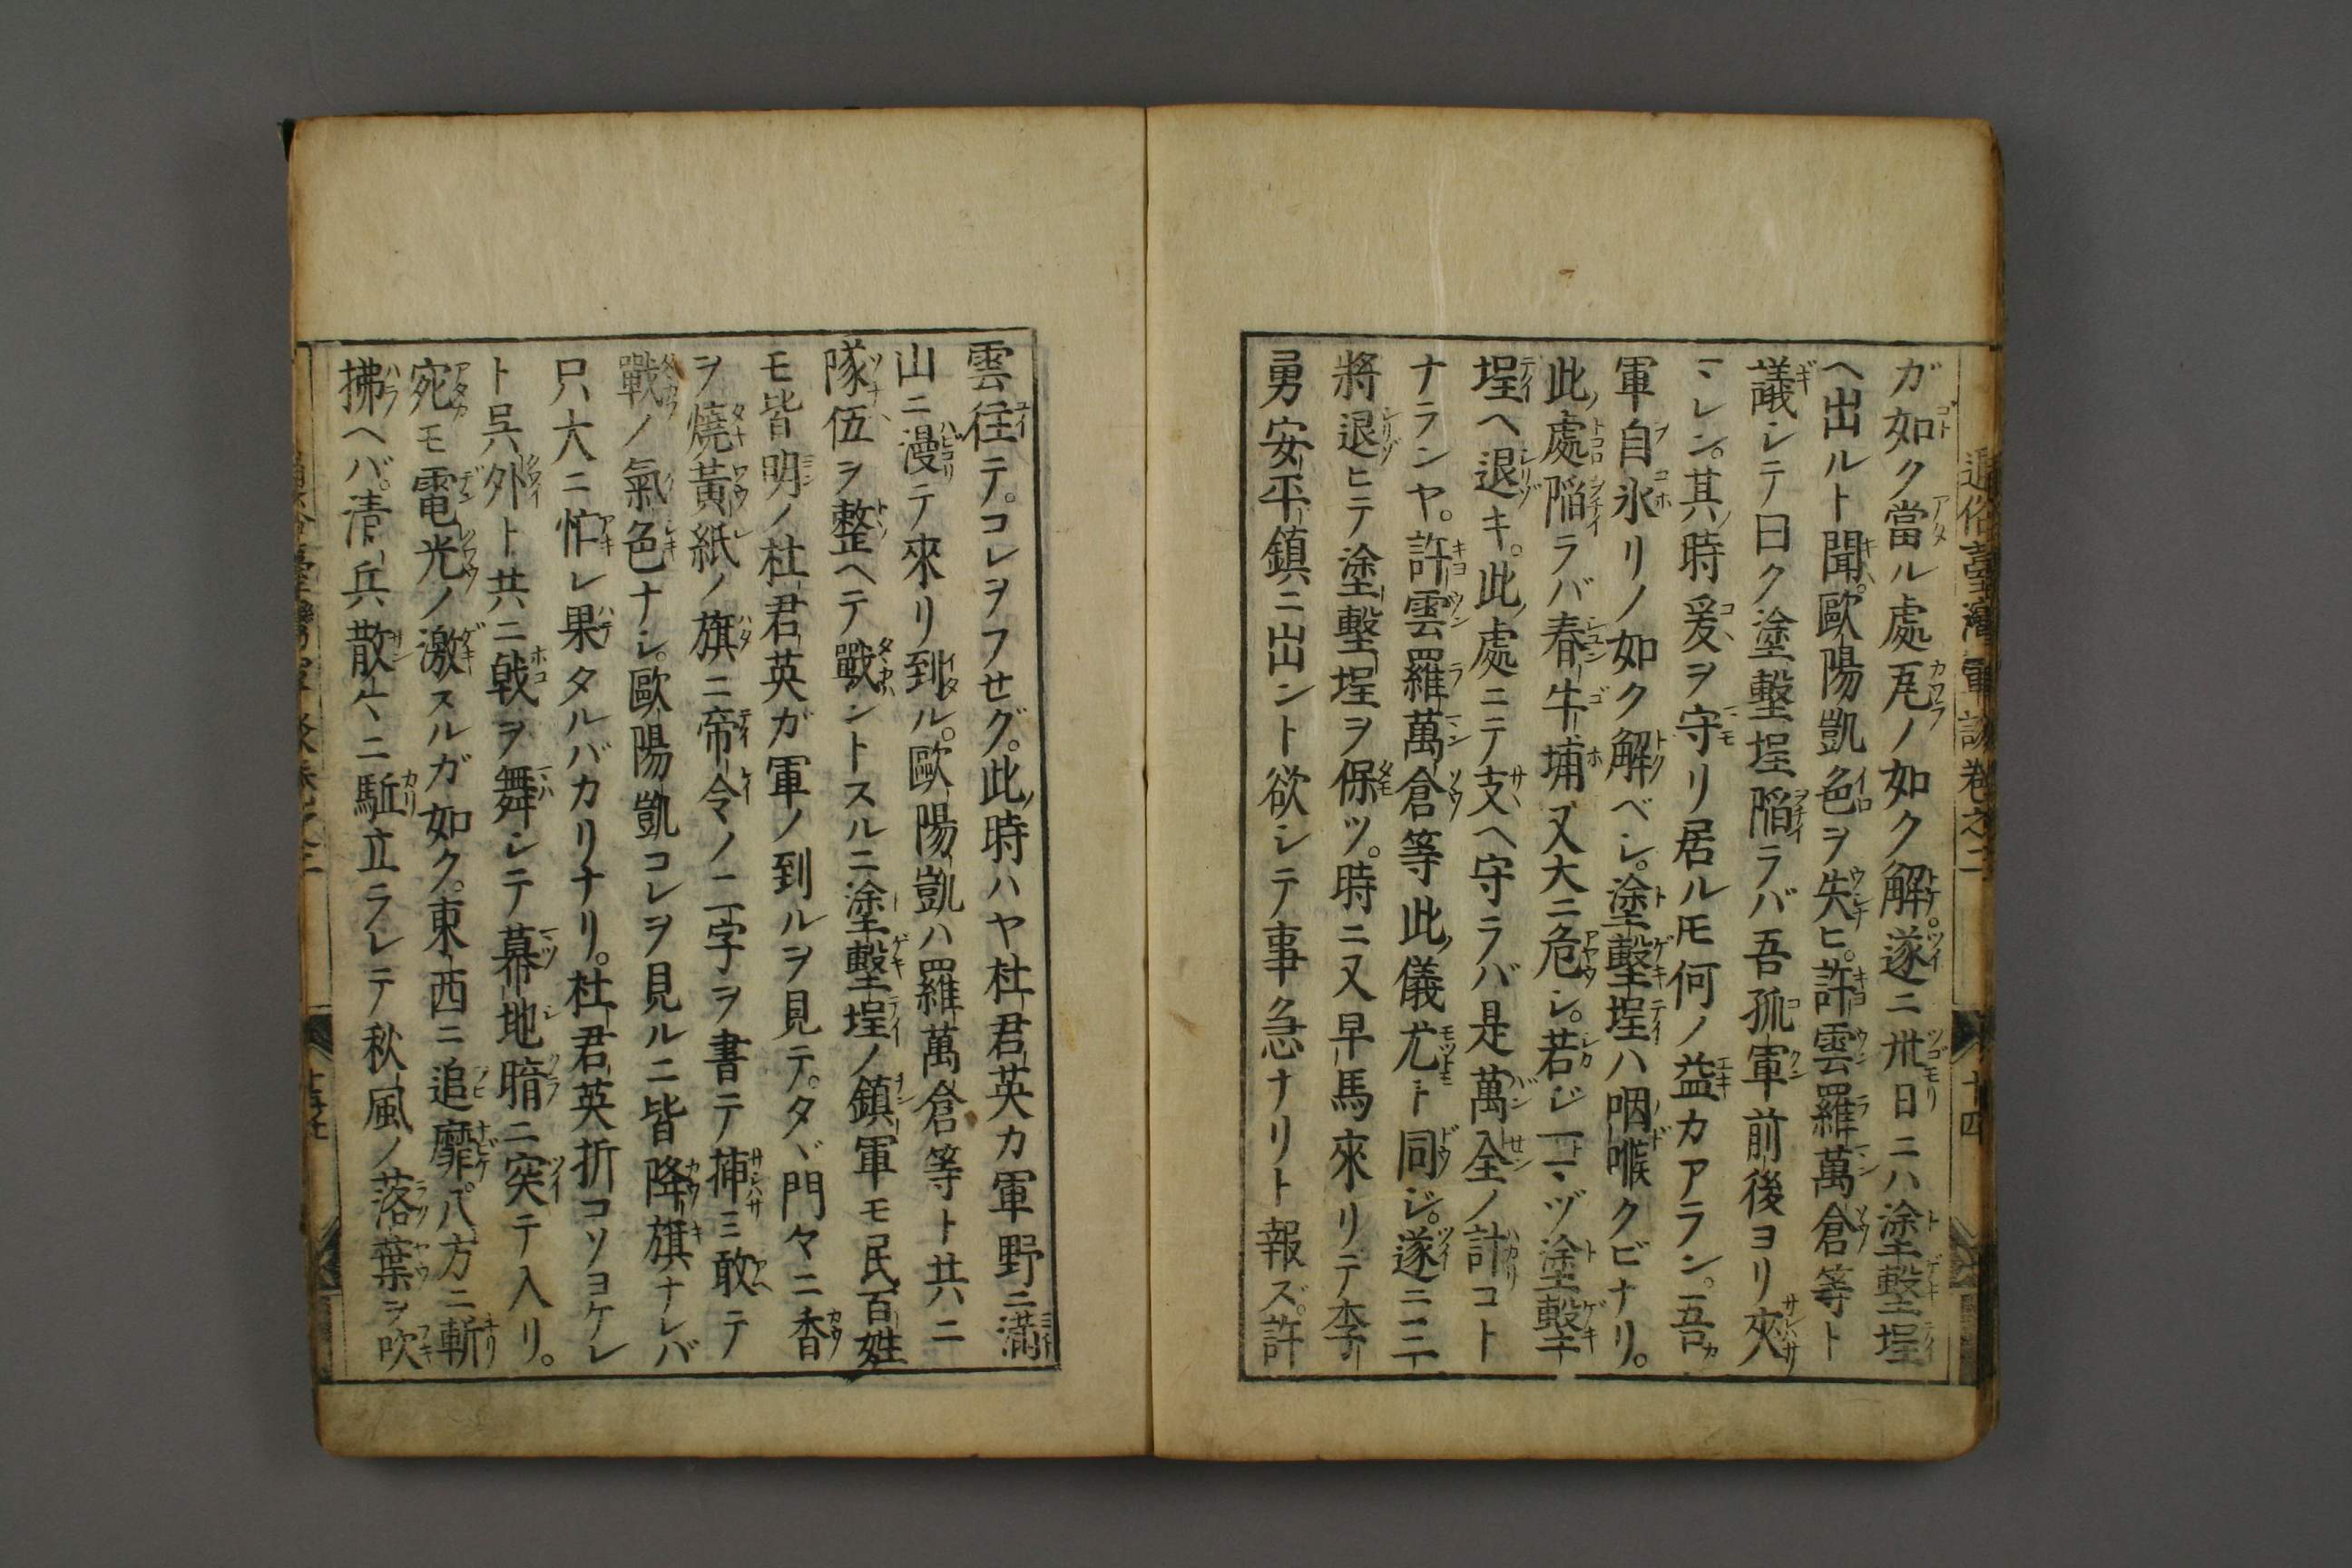 通俗臺灣軍談卷之二 十四
ガ如ク當ル處瓦ノ如ク解。遂ニ卅日ニハ塗墼埕
ヘ出ルト聞。歐陽凱色ヲ失ヒ。許雲羅萬倉等ト
議シテ曰ク塗墼埕陷ラバ吾孤軍前後ヨリ夾
マレン。其時爰ヲ守リ居ルトモ何ノ益カアラン。吾
軍自氷リノ如ク解ベシ。塗墼埕ハ咽喉クビナリ。
此處陷ラバ春牛埔又大ニ危シ。若ジマヅ塗墼
埕ヘ退キ。此處ニテ支ヘ守ラバ是萬全ノ計コト
ナランヤ。許雲羅萬倉等此儀尤ト同ジ。遂ニ三
將退ヒテ塗墼埕ヲ保ツ。時ニ又早馬來リテ李
勇安平鎮ニ出ント欲シテ事急ナリト報ズ。許
雲往テ。コレヲフセグ。此時ハヤ杜君英カ軍野ニ滿
山ニ漫テ來リ到ル。歐陽凱ハ羅萬倉等ト共ニ
隊伍ヲ整ヘテ戰ントスルニ塗墼埕ノ鎮軍モ民百姓
モ皆明ノ杜君英ガ軍ノ到ルヲ見テ。タヾ門々ニ香
ヲ燒黃紙ノ旗ニ帝令ノ二字ヲ書テ揷ミ敢テ
戰ノ氣色ナシ。歐陽凱コレヲ見ルニ皆降旗ナレバ
只大ニ怕レ果タルバカリナリ。杜君英折コソヨケレ
ト呉外ト共ニ戟ヲ舞シテ幕地暗ニ突テ入リ。
宛モ電光ノ激スルガ如ク。東西ニ追靡。八方ニ斬
拂ヘバ。清兵散々ニ駈立ラレテ秋風ノ落葉ヲ吹